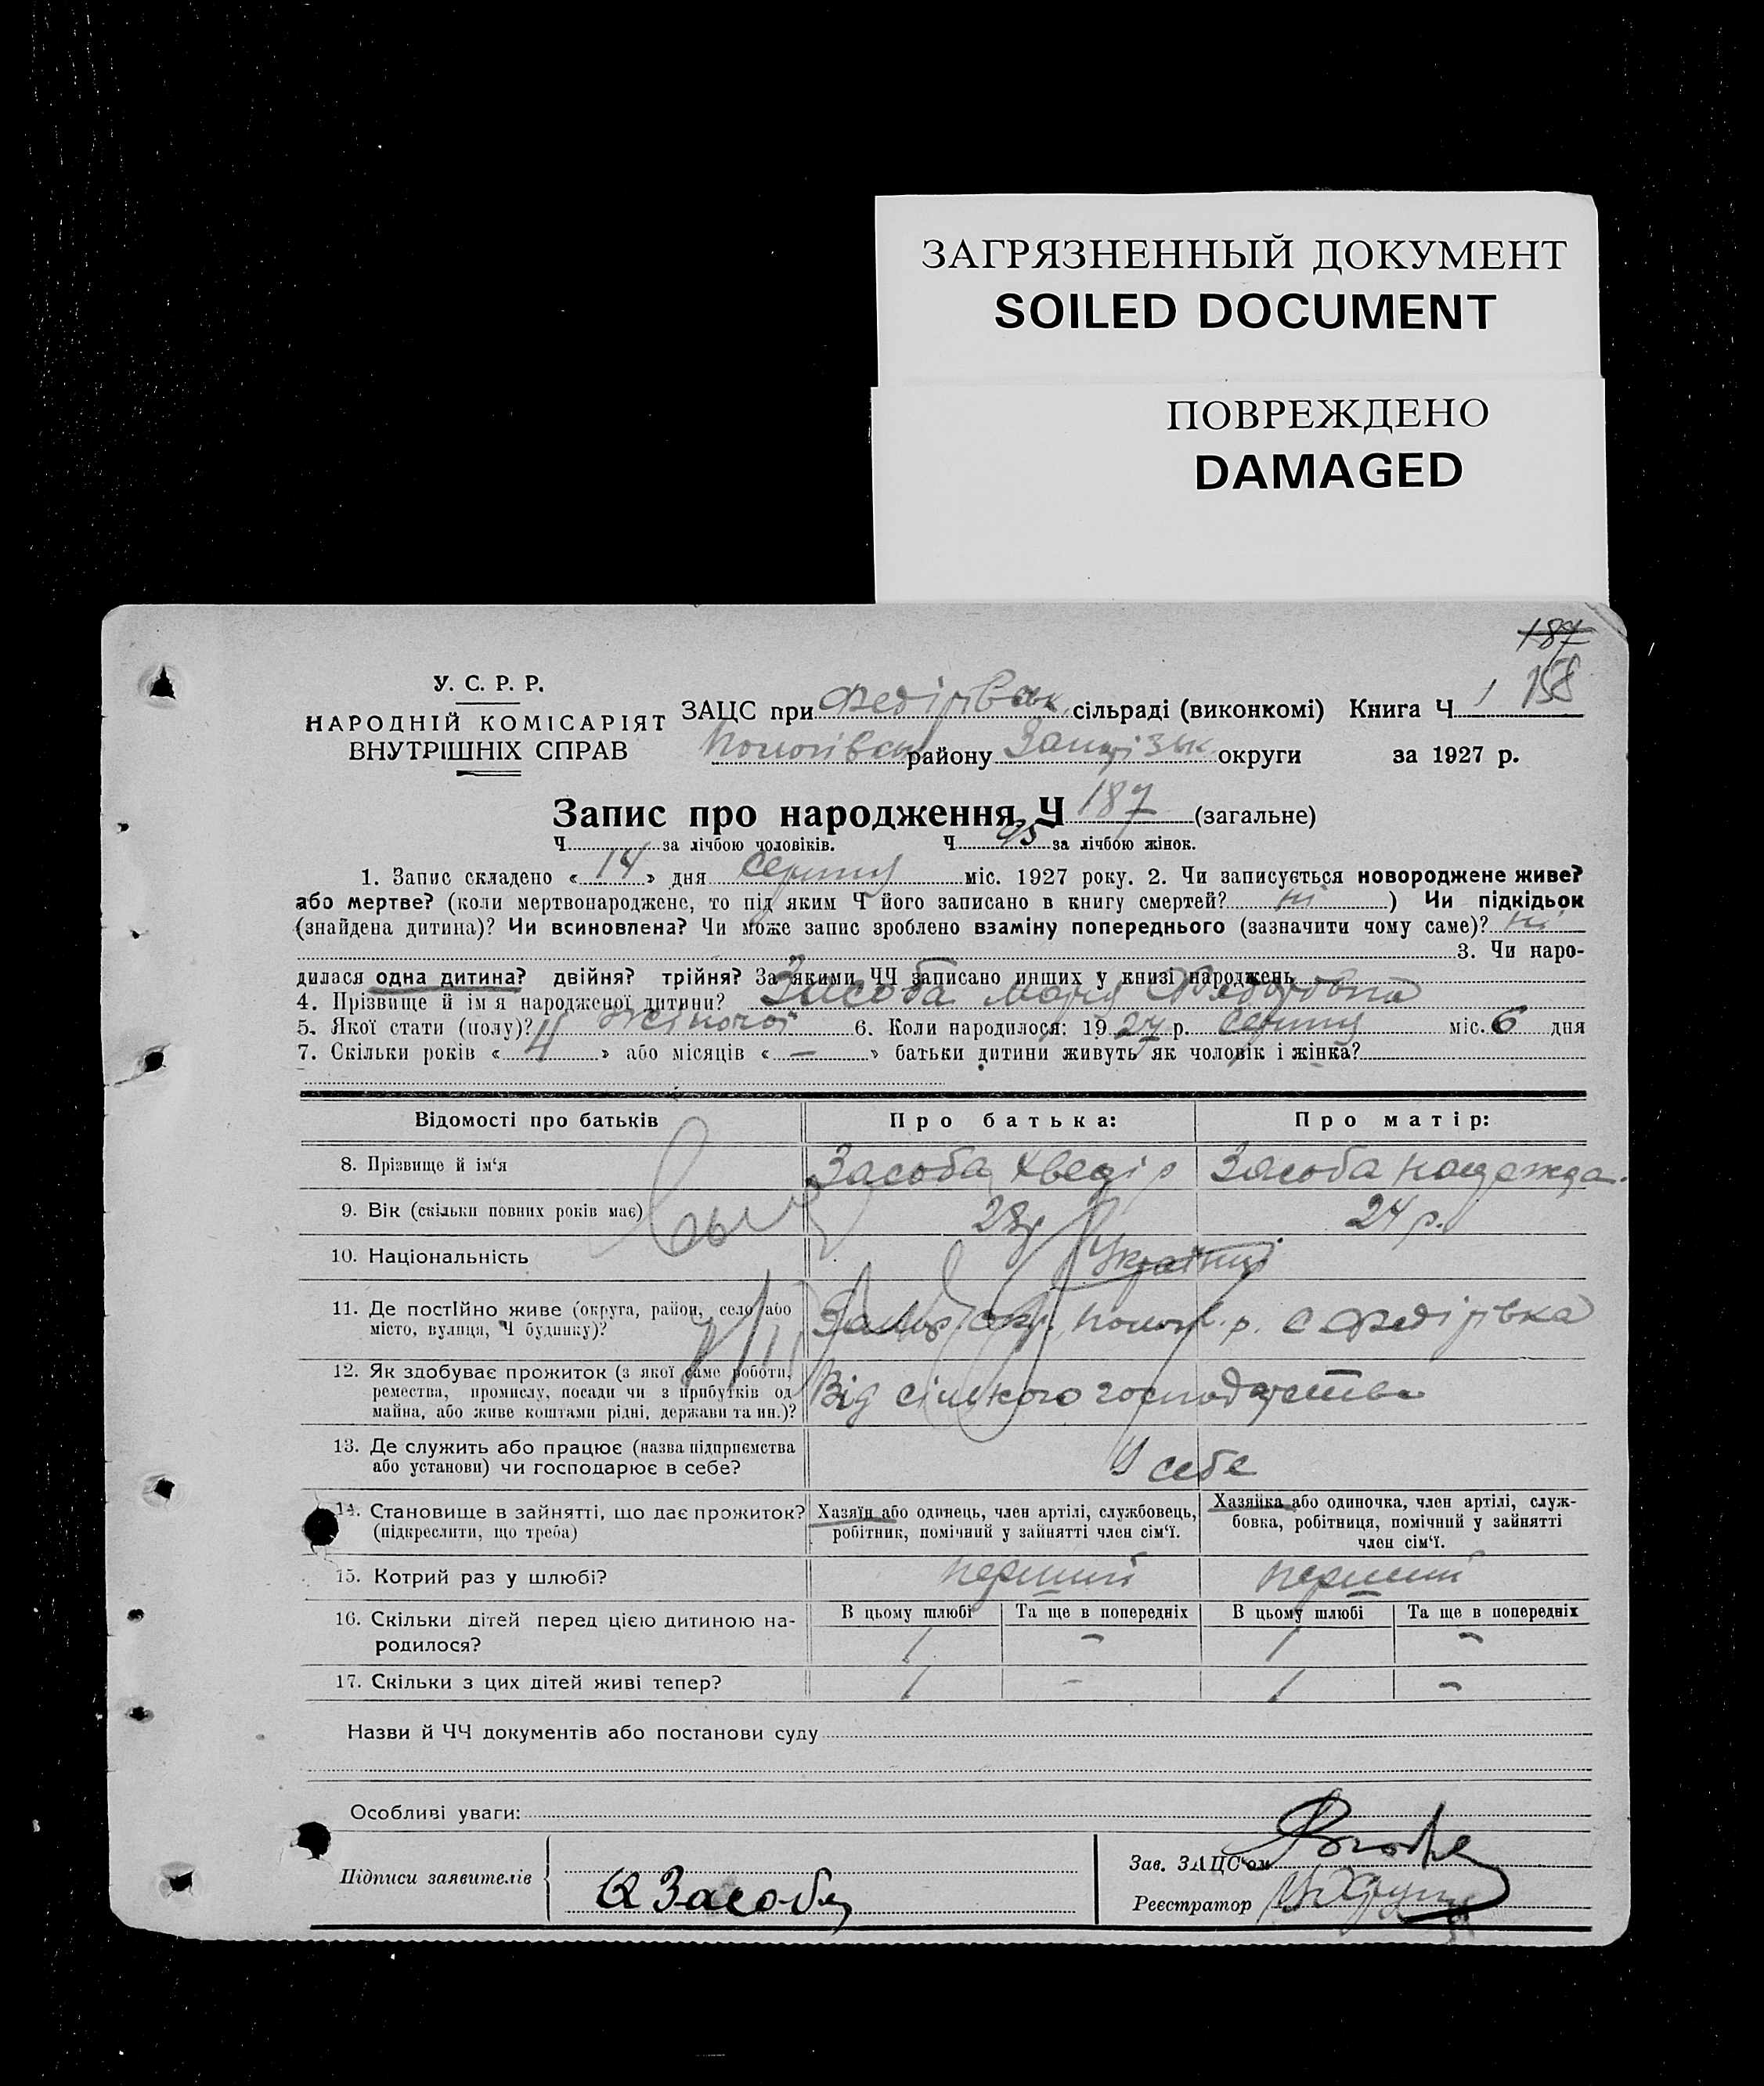 ЗАГРЯЗНЕННЫЙ ДОКУМЕНТ
SOILED DOCUMENT
ПОВРЕЖДЕНО
DAMAGED
187
158
У. С. Р. Р.
НАРОДНІЙ КОМІСАРІЯТ
ВНУТРІШНІХ СПРАВ
ЗАЦС при Федірівськ. сільраді (виконкомі) Книга Ч 1
району Запорізьк округи за 1927 р.
Запис про народження Ч 187 (загальне)
Ч за лічбою чоловіків. Ч 95 за лічбою жінок.
1. Запис складено « 14 » дня серпня міс. 1927 року. 2. Чи записується новороджене живе?
або мертве? (коли мертвонароджене, то під яким Ч його записано в книгу смертей? ні ) Чи підкідьок
(знайдена дитина)? Чи всиновлена? Чи може запис зроблено взаміну попереднього (зазначити чому саме)? ні
3. Чи наро-
дилася одна дитина? двійня? трійня? За якими ЧЧ записано инших у книзі народжень
4. Прізвище й ім'я народженої дитини? Засоба Марія
5. Якої статі (полу)? жіночої 6. Коли народилося: 1927 р. серпня міс. 6 дня
7. Скільки років « 4 » або місяців « — » батьки дитини живуть як чоловік і жінка?
Відомості про батьків Про батька: Про матір:
8. Прізвище й ім'я Засоба Хведір Засоба Надежда
9. Вік (скільки повних років має) 28р 24 р.
10. Національність Українці
11. Де постійно живе (округа, район, село, або
місто, вулиця, Ч будинку)? Запор. окр. р. с Федірівка
12. Як здобуває прожиток (з якої саме роботи,
ремества, промислу, посади чи з прибутків од
майна, або живе коштами рідні, держави та ин.)? Від сільского господарства
13. Де служить або працює (назва підприємства
або установи) чи господарює в себе? У себе
14. Становище в зайнятті, що дає прожиток?
(підкреслити, що треба)
Хазяїн або одинець, член артілі, службовець,
робітник, помічний у зайнятті член сім'ї.
Хазяйка або одиночка, член артілі, служ-
бовка, робітниця, помічний у зайнятті
член сім'ї.
15. Котрий раз у шлюбі? перший перший
16. Скільки дітей перед цією дитиною на-
родилося?
В цьому шлюбі Та ще в попередніх В цьому шлюбі Та ще в попередніх
1 — 1 —
17. Скільки з цих дітей живі тепер? 1 — 1 —
Назви й ЧЧ документів або постанови суду
Особливі уваги:
Підписи заявителів Засоба
Зав. ЗАЦС'ом
Реєстратор